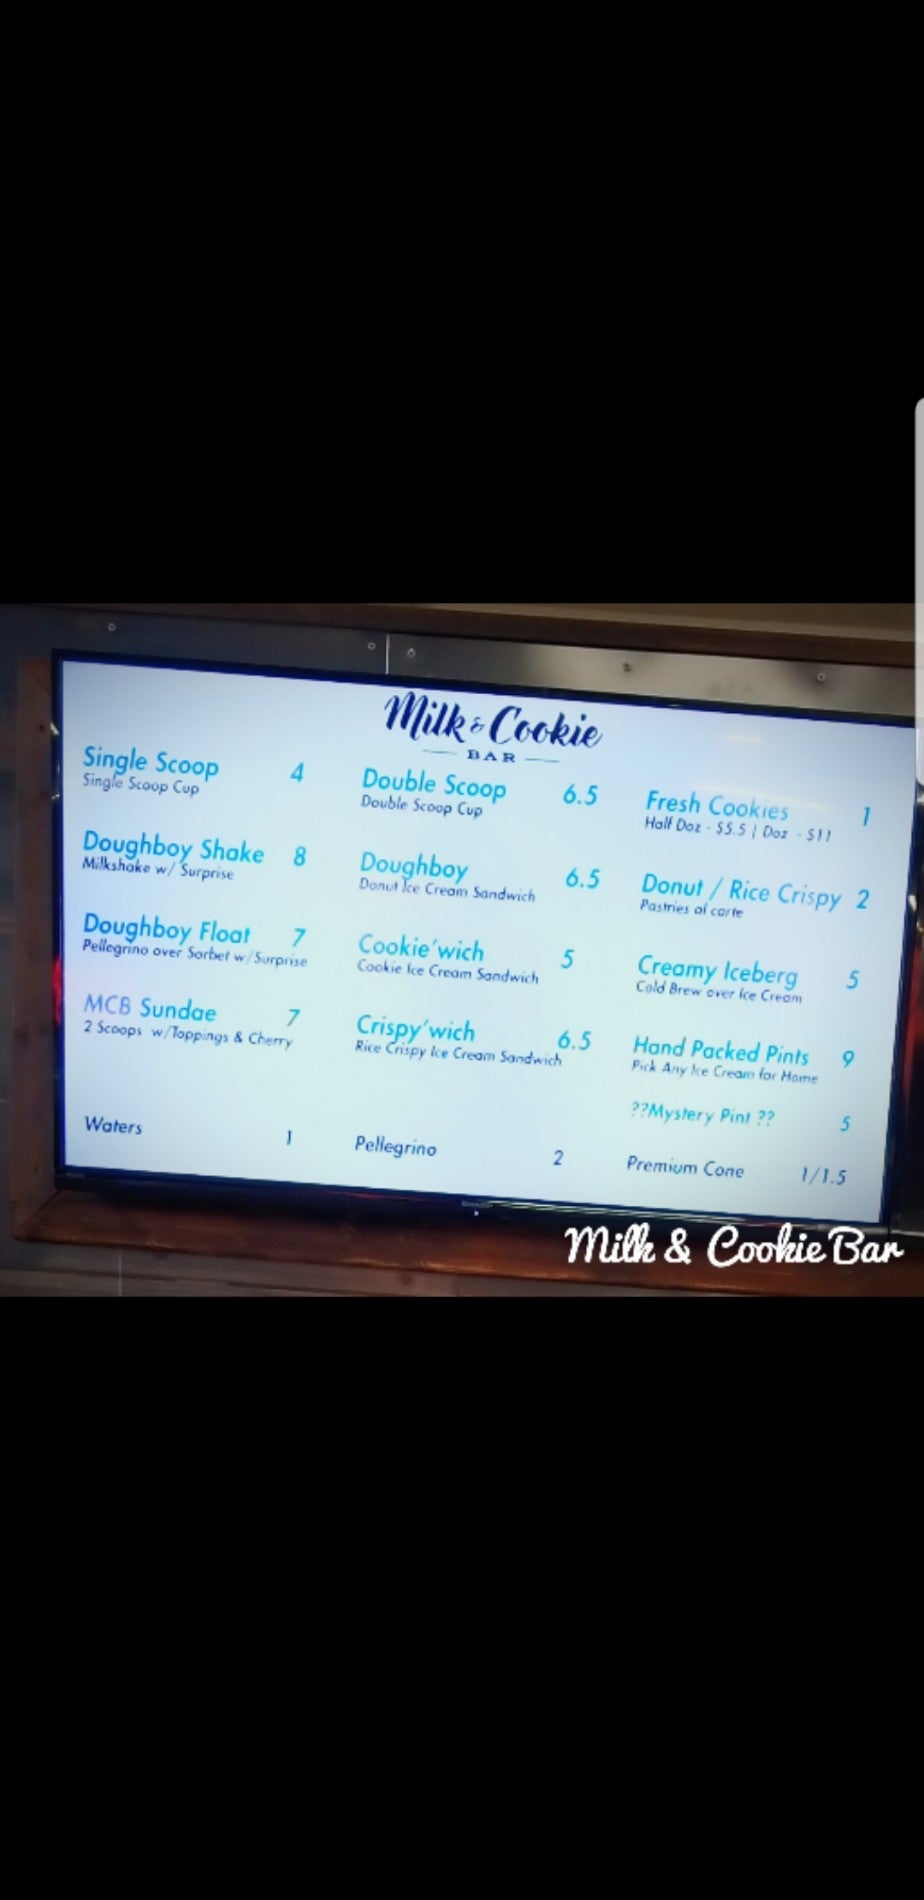 Milk & Cookie
BAR
Single Scoop 4
Single Scoop Cup
Doughboy Shake 8
Milkshake w/ Surprise
Doughboy Float 7
Pellegrino over Sorbet w/Surprise
MCB Sundae 7
2 Scoops w/Toppings & Cherry
Waters 1
Double Scoop 6.5
Double Scoop Cup
Doughboy 6.5
Donut Ice Cream Sandwich
Cookie'wich 5
Cookie Ice Cream Sandwich
Crispy'wich 6.5
Rice Crispy Ice Cream Sandwich
Pellegrino 2
Fresh Cookies 1
Half Doz - $5.5 | Doz - $11
Donut / Rice Crispy 2
Pastries al carte
Creamy Iceberg 5
Cold Brew over Ice Cream
Hand Packed Pints 9
Pick Any Ice Cream for Home
??Mystery Pint ?? 5
Premium Cone 1/1.5
Milk & Cookie Bar